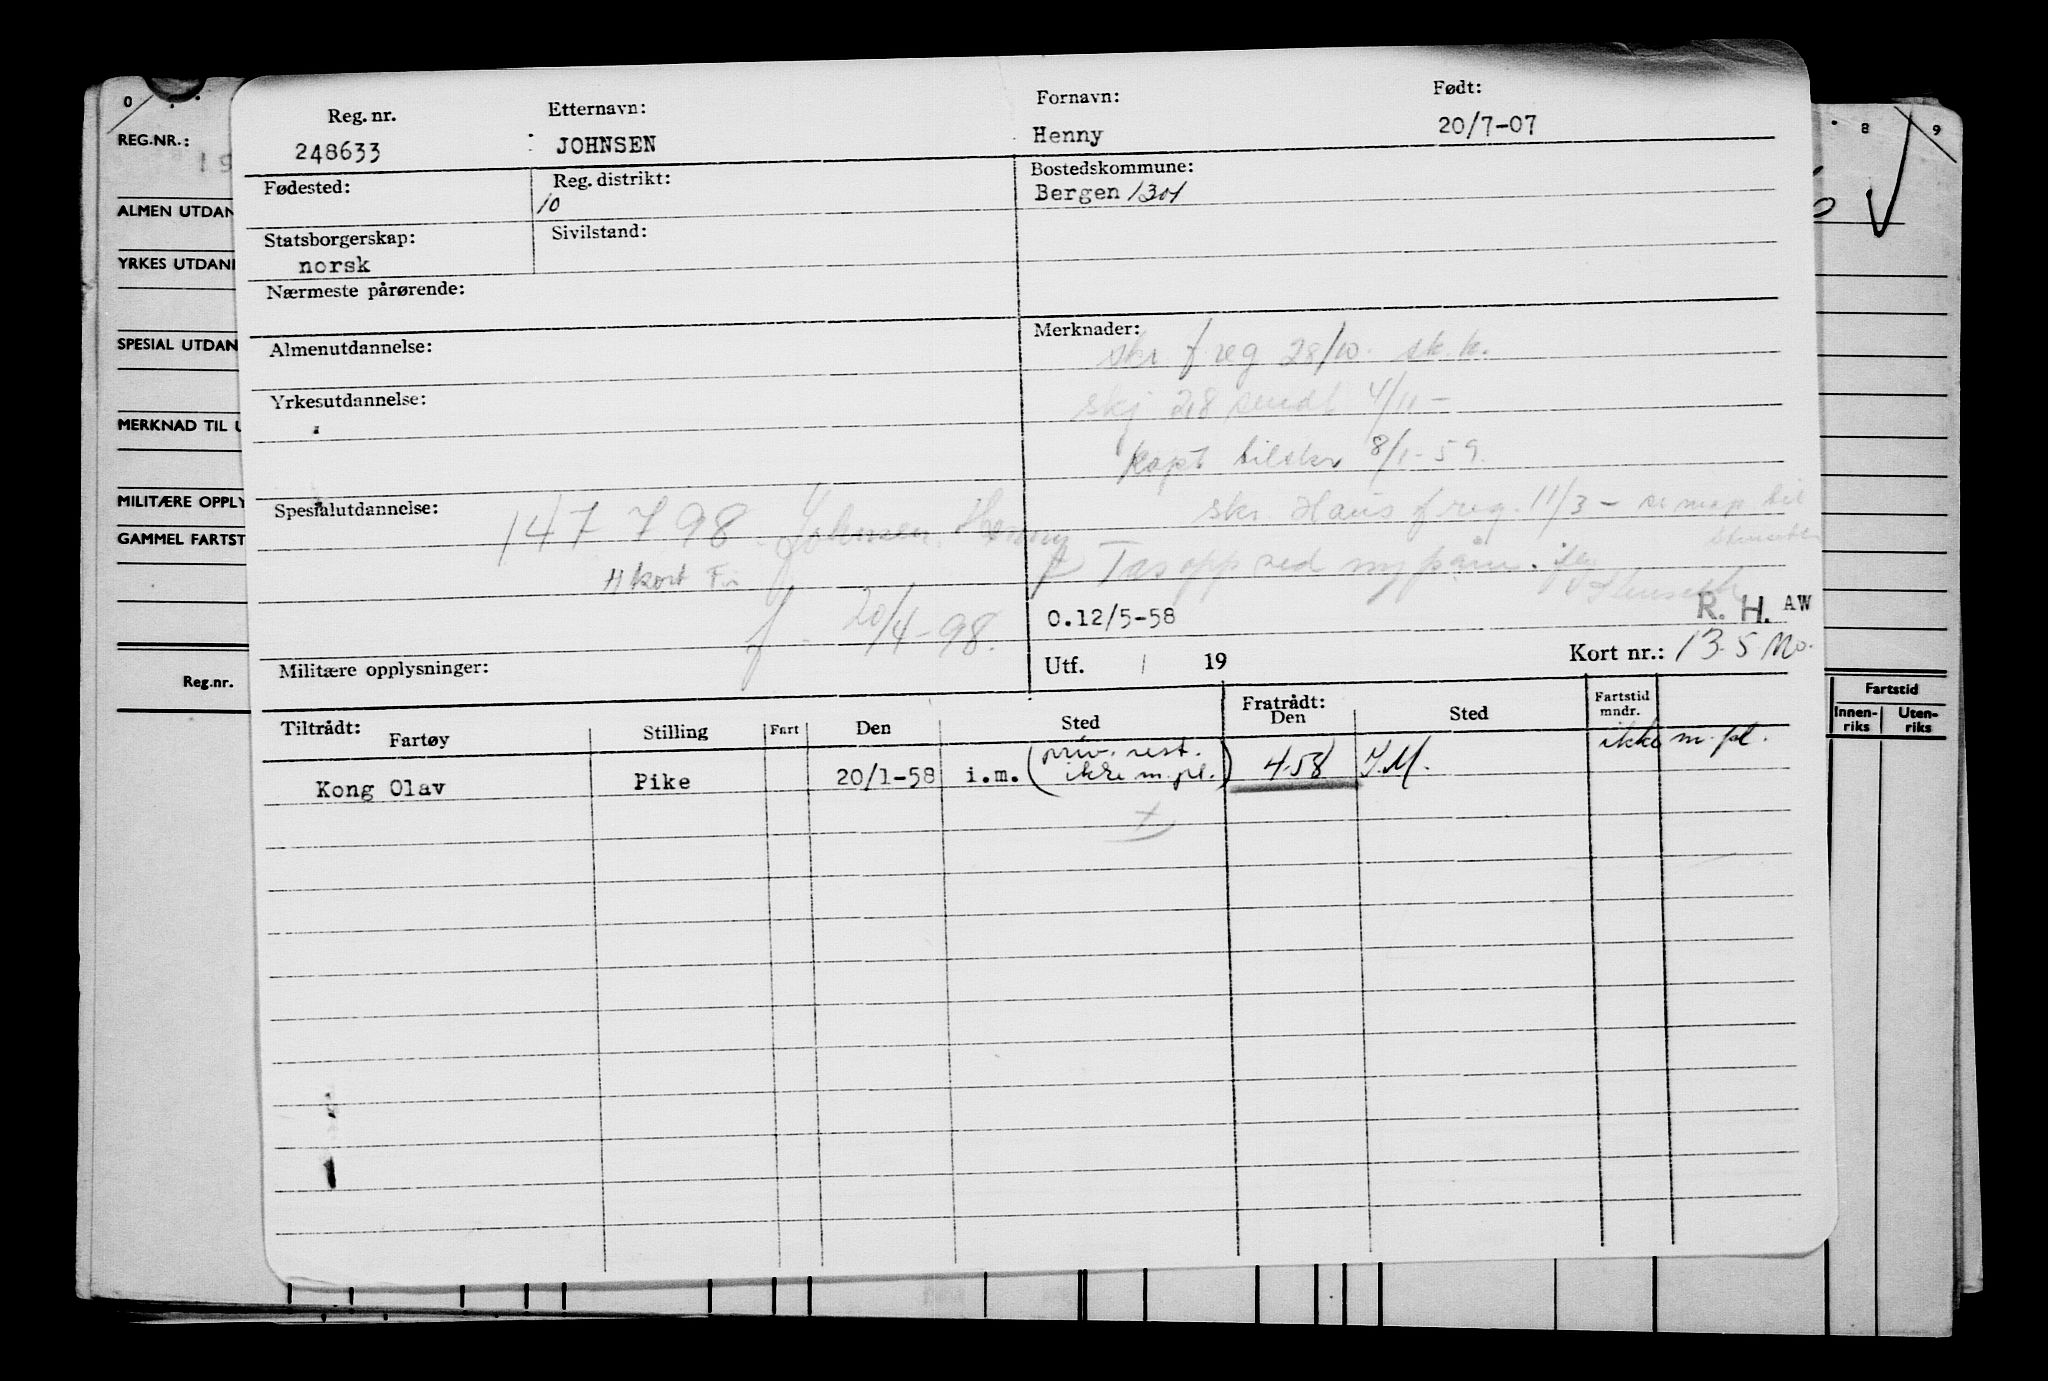 0 8 9
REG.NR.:
ALMEN UTDAN
YRKES UTDAN
SPECIAL UTDAN
MERKNAD TIL U
MILITÆRE OPPLY
GAMMEL FARTST
Reg.nr.
Reg. nr. Etternavn: Fornavn: Født:
248633 JOHNSEN Henny 20/7-07
Fødested: Reg. distrikt: Bostedskommune:
10 Bergen 1301
Statsborgerskap: Sivilstand:
norsk
Nærmeste pårørende:
Almenutdannelse: Merknader:
skr f reg 28/10. sk.k.
Yrkesutdannelse:
skj 218 sendt 4/11-
kopt tilskr 8/1-59.
Spesialutdannelse:
skr. Haus f reg. 11/3 -
147 798 Johnsen, Henny
Tas opp ved
A kort
f. 20/4-98.
O.12/5-58 R. H. AW
Militære opplysninger: Utf. / 19 Kort nr.: 13-5 Mo.
Tiltrådt: Fratrådt: Fartstid mndr.
Fartøy Stilling Fart Den Sted Den Sted
Kong Olav Pike 20/1-58 i.m. (priv. rest. ikke m. pl.) 4.58 I.M. ikke m. pl.
Fartstid
Innen-riks Uten-riks